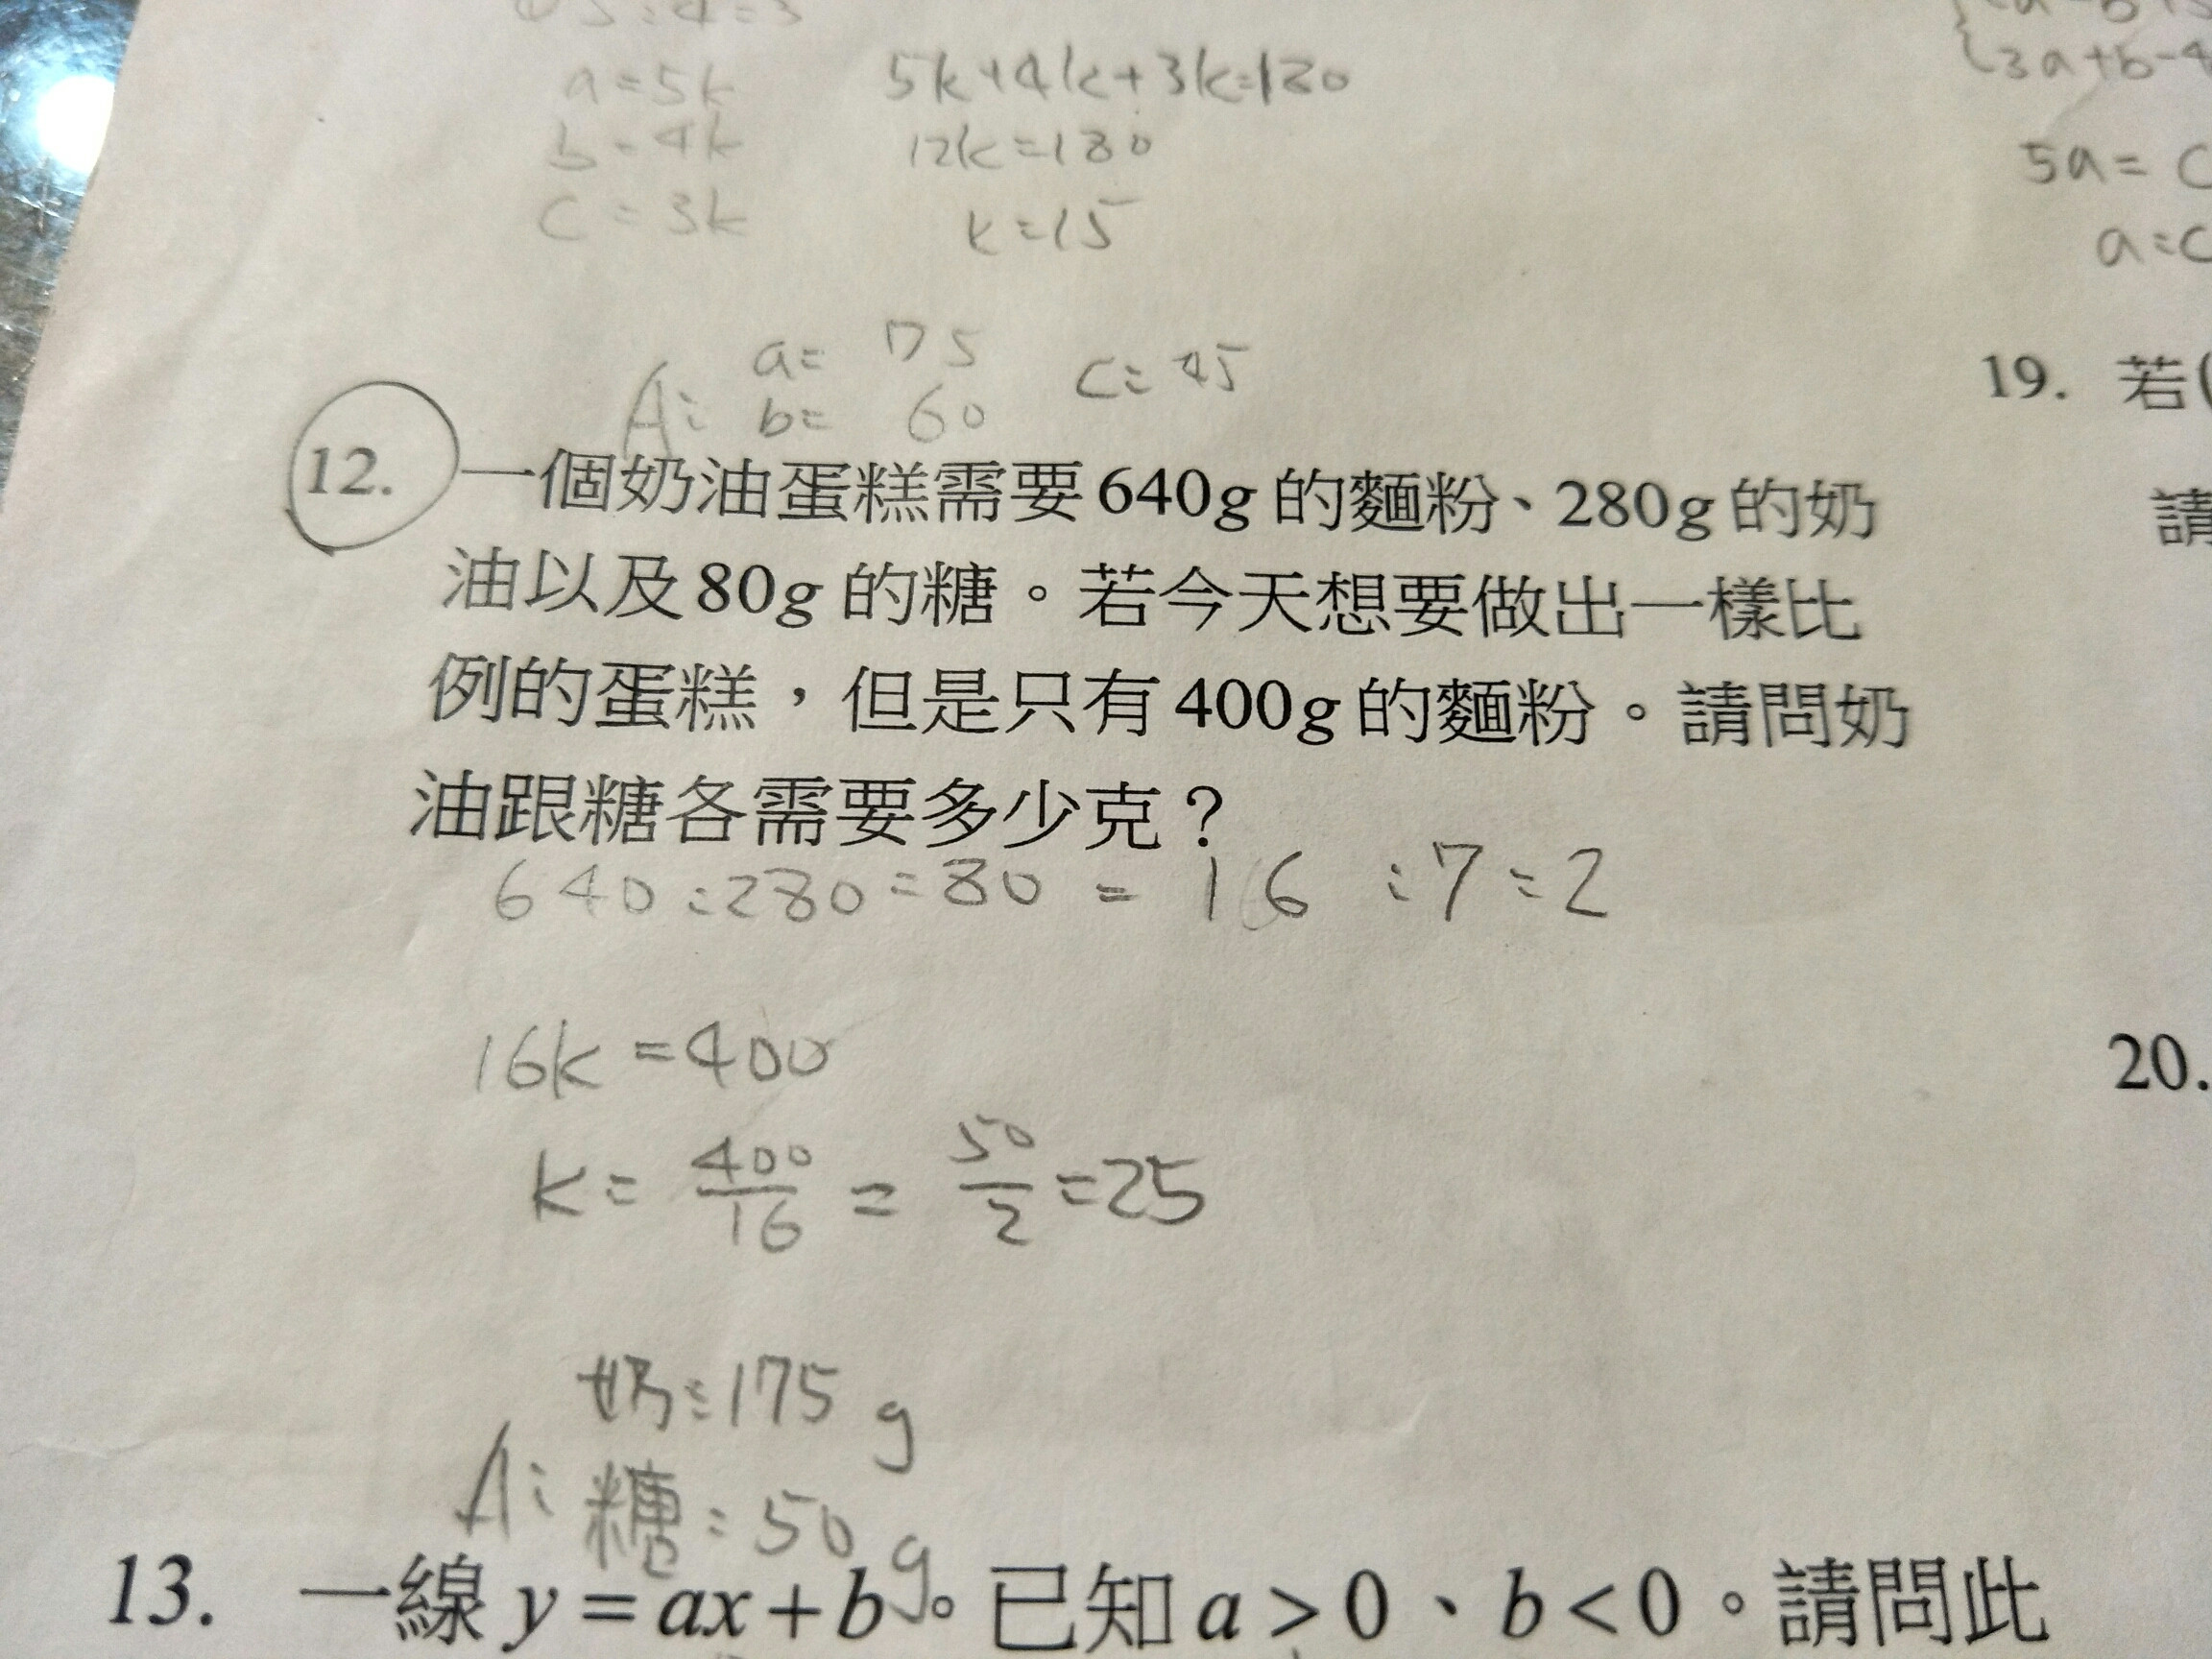 a=5k 5k+4k+3k=180
b=4k 12k=180
c=3k k=15
3a+b-4
5a=C
a=C
a= 75 c= 45
A: b= 60
12. 一個奶油蛋糕需要640g的麵粉、280g的奶
油以及80g的糖。若今天想要做出一樣比
例的蛋糕，但是只有400g的麵粉。請問奶
油跟糖各需要多少克？
640:280:80 = 16:7:2
16k=400
k= 400/16 = 50/2 =25
奶:175 g
A: 糖:50 g
13. 一線y=ax+b。已知a>0、b<0。請問此
19. 若(
請
20.